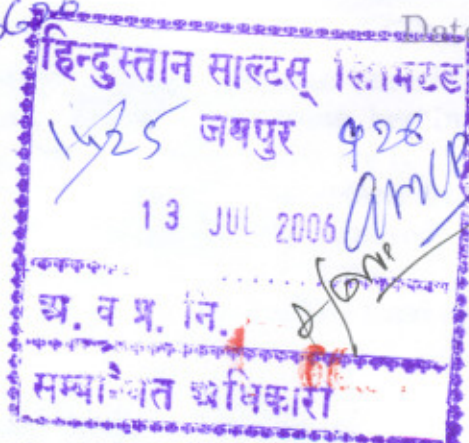 Date
हिन्दुस्तान साल्टस् लिमिटेड
1425 जयपुर 928
13 JUL 2006
अ. व प्र. नि.
सम्बन्धित अधिकारी